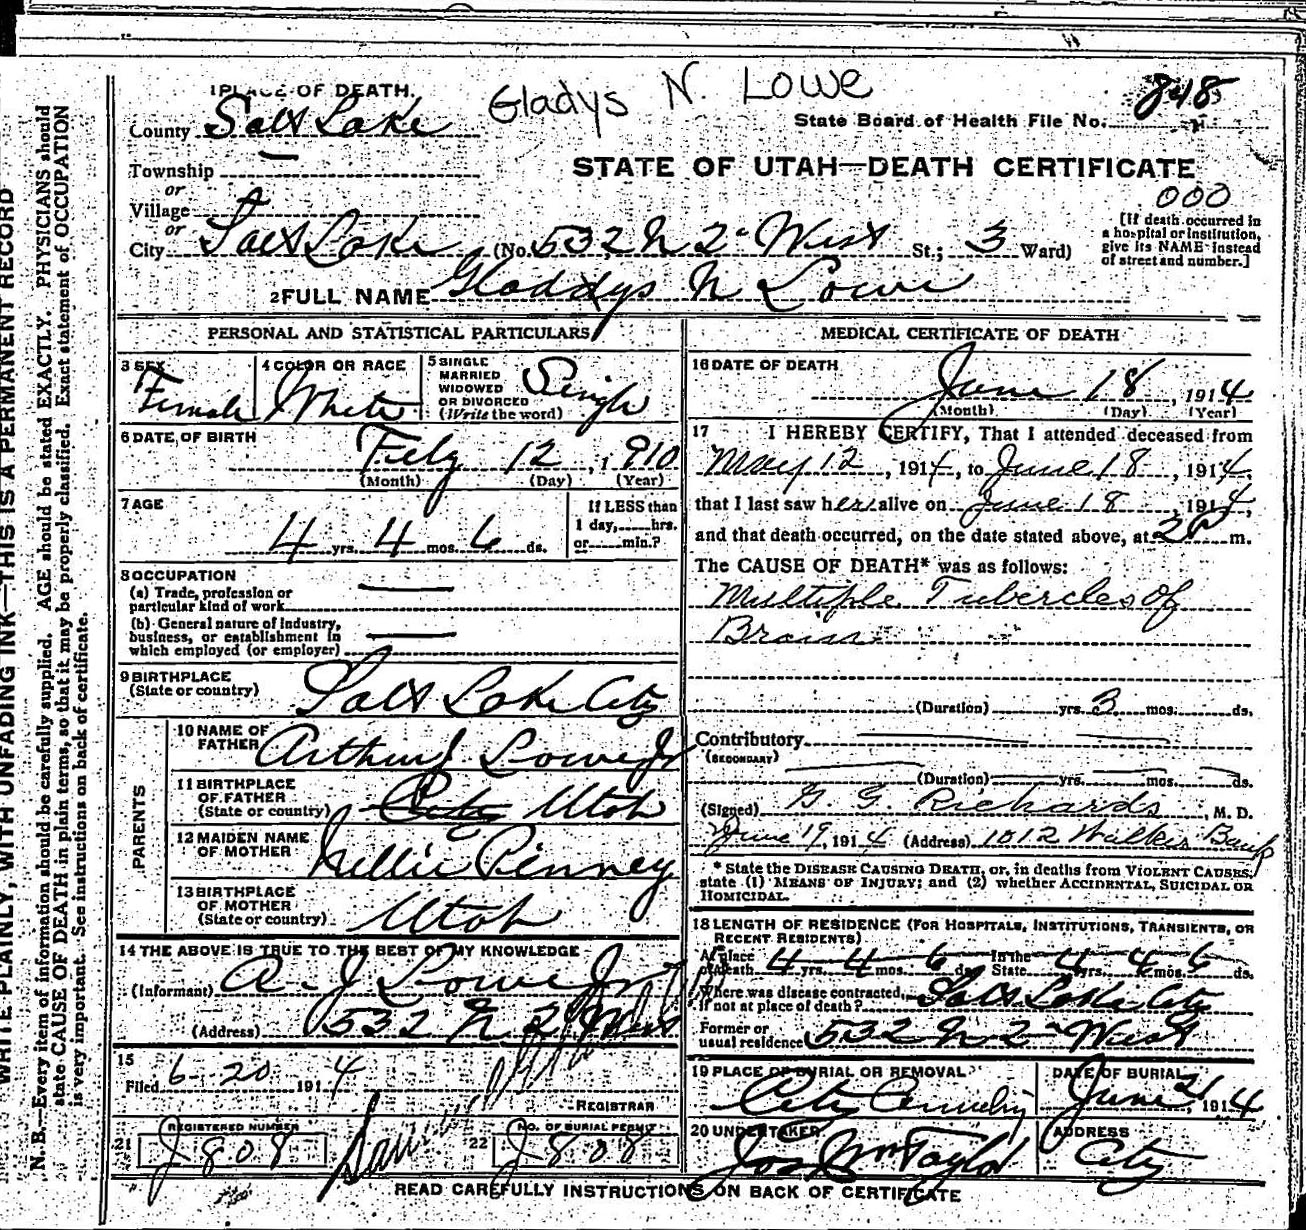 Gladys N. Lowe
1 PLACE OF DEATH.
County Salt Lake
State Board of Health File No. 848
Township —
STATE OF UTAH—DEATH CERTIFICATE
or
Village
000
or
City Salt Lake (No. 532 N 2nd West St.; 3 Ward)
[If death occurred in a hospital or institution, give its NAME instead of street and number.]
2 FULL NAME Gladdys N Lowe
PERSONAL AND STATISTICAL PARTICULARS
3 SEX Female
4 COLOR OR RACE White
5 SINGLE MARRIED WIDOWED OR DIVORCED (Write the word) Single
6 DATE OF BIRTH Feby 12, 1910
(Month) (Day) (Year)
7 AGE 4 yrs. 4 mos. 6 ds.
If LESS than 1 day, hrs. or min.?
8 OCCUPATION
(a) Trade, profession or particular kind of work —
(b) General nature of industry, business, or establishment in which employed (or employer) —
9 BIRTHPLACE (State or country) Salt Lake City
PARENTS
10 NAME OF FATHER Arthur J Lowe Jr
11 BIRTHPLACE OF FATHER (State or country) City Utah
12 MAIDEN NAME OF MOTHER Nellie Pinney
13 BIRTHPLACE OF MOTHER (State or country) Utah
14 THE ABOVE IS TRUE TO THE BEST OF MY KNOWLEDGE
(Informant) A. J Lowe Jr
(Address) 532 N 2nd West
15
Filed 6-20 1914
REGISTRAR
21 REGISTERED NUMBER J 808
22 NO. OF BURIAL PERMIT J 808
MEDICAL CERTIFICATE OF DEATH
16 DATE OF DEATH June 18, 1914
(Month) (Day) (Year)
17 I HEREBY CERTIFY, That I attended deceased from
May 12, 1914, to June 18, 1914,
that I last saw her alive on June 18, 1914,
and that death occurred, on the date stated above, at 2 P m.
The CAUSE OF DEATH* was as follows:
Multiple Tubercles of
Brain
(Duration) yrs. 3 mos. ds.
Contributory (SECONDARY) —
(Duration) — yrs. — mos. — ds.
(Signed) G. G. Richards, M. D.
June 19, 1914 (Address) 1012 Walker Bank
* State the DISEASE CAUSING DEATH, or, in deaths from VIOLENT CAUSES, state (1) MEANS OF INJURY; and (2) whether ACCIDENTAL, SUICIDAL OR HOMICIDAL.
18 LENGTH OF RESIDENCE (FOR HOSPITALS, INSTITUTIONS, TRANSIENTS, OR RECENT RESIDENTS)
At place of death 4 yrs. 4 mos. 6 ds. In the State 4 yrs. 4 mos. 6 ds.
Where was disease contracted, if not at place of death? Salt Lake City
Former or usual residence 532 N 2nd West
19 PLACE OF BURIAL OR REMOVAL City Cemetery
DATE OF BURIAL June 21, 1914
20 UNDERTAKER Jos Wm Taylor
ADDRESS City
READ CAREFULLY INSTRUCTIONS ON BACK OF CERTIFICATE
WRITE PLAINLY, WITH UNFADING INK—THIS IS A PERMANENT RECORD
N. B.—Every item of information should be carefully supplied. AGE should be stated EXACTLY. PHYSICIANS should
state CAUSE OF DEATH in plain terms, so that it may be properly classified. Exact statement of OCCUPATION
is very important. See instructions on back of certificate.